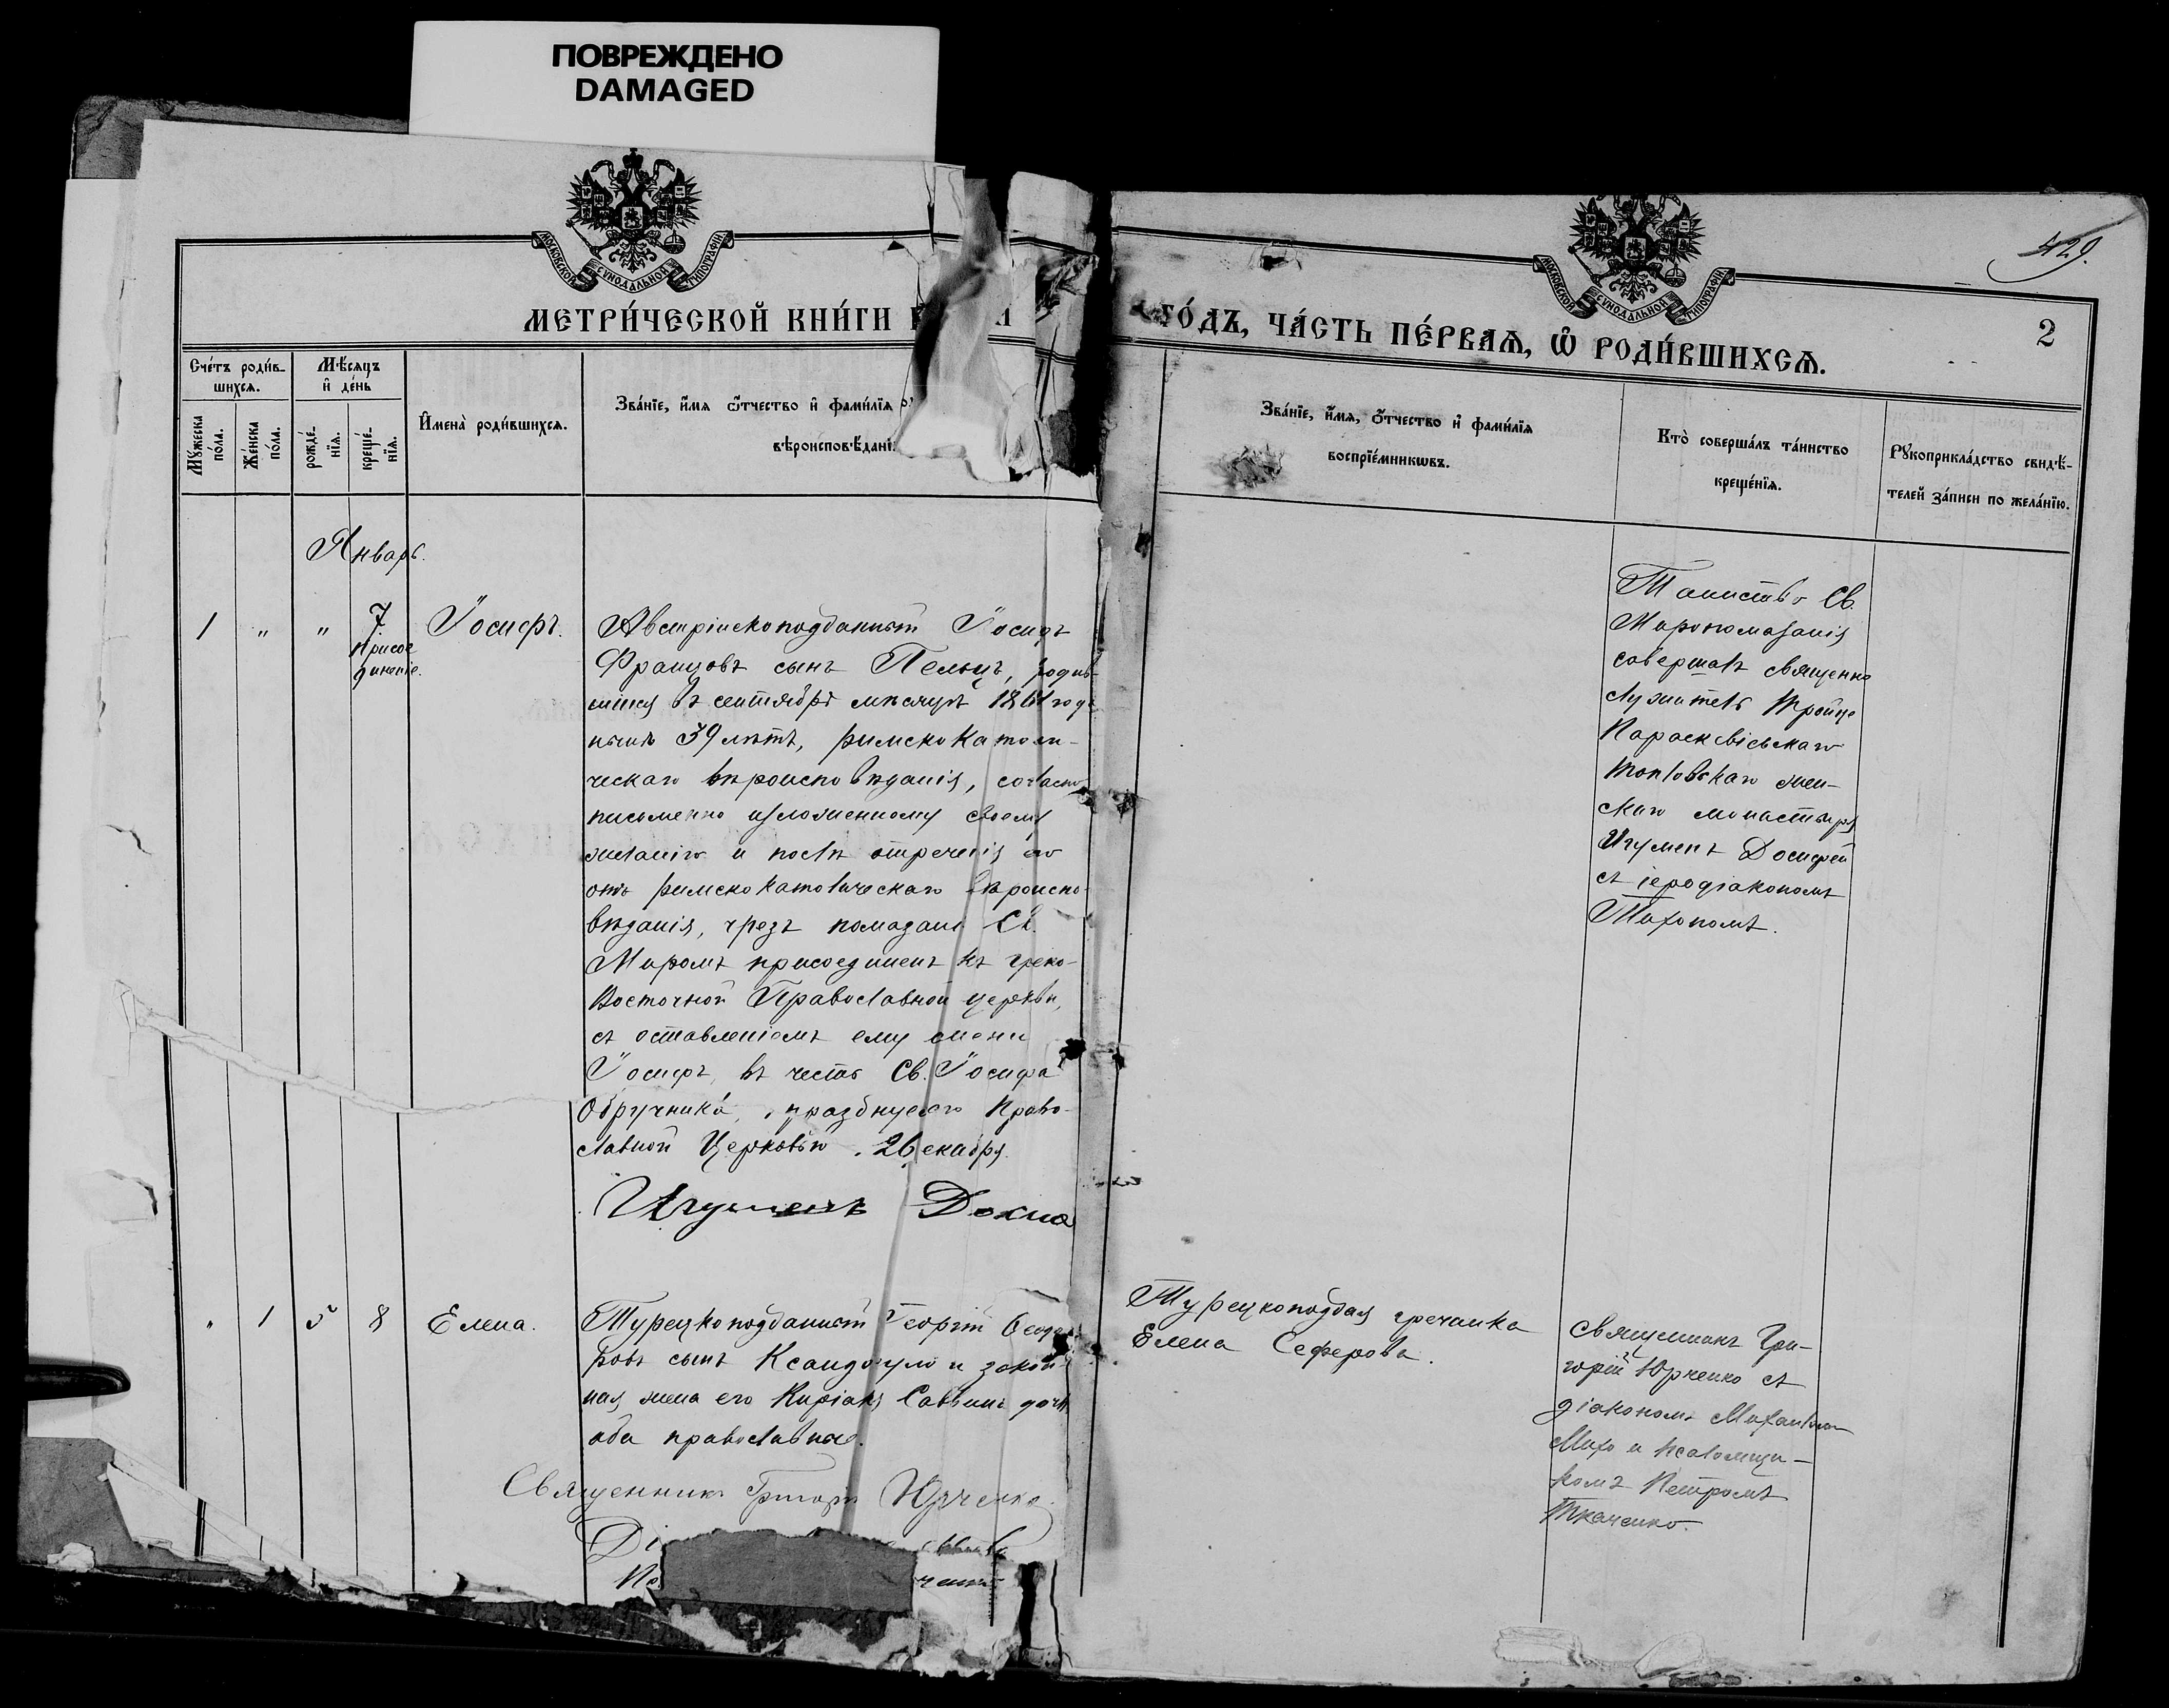 ПОВРЕЖДЕНО
DAMAGED
МОСКОВСКОЙ СѴНОДАЛЬНОЙ ТИПОГРАФІИ
МОСКОВСКОЙ СѴНОДАЛЬНОЙ ТИПОГРАФІИ
429.
2
МЕТРИ́ЧЕСКОЙ КНИ́ГИ
ГО́ДЪ, ЧА́СТЬ ПЕ́РВАѦ, Ѡ҆ РОДИ́ВШИХСѦ.
Сче́тъ роди́в-
шихсѧ.
Мꙋ́жеска по́ла.
Же́нска по́ла.
Мѣ́сѧцъ
и҆ де́нь
рожде́-
нїѧ.
креще́-
нїѧ.
И҆мена̀ роди́вшихсѧ.
Зва́нїе, и҆́мѧ ѻ҆́тчество и҆ фами́лїѧ
вѣроисповѣ́данї
Зва́нїе, и҆́мѧ, ѻ҆́тчество и҆ фами́лїѧ
воспрїе́мникѡвъ.
Кто̀ соверша́лъ та́инство
креще́нїѧ.
Рꙋкоприкла́дство свидѣ́-
телей за́писи по жела́нїю.
Январь.
1 " " 7 Іосифъ.
Присое
диненіе.
Австрійскоподданный Іосифъ
Францовъ сынъ Пельцъ, родив-
шійся въ сентябрѣ мѣсяцѣ 1861 года
нынѣ 39 лѣтъ, римскокатоли-
ческаго вѣроисповѣданія, согласно
письменно изложенному своему
желанію и послѣ отреченія его
отъ римскокатолическаго вѣроиспо-
вѣданія, чрезъ помазані Св.
Мѵромъ присоединенъ къ греко-
Восточной Православной церкви,
съ оставленіемъ ему имени
Іосифъ, въ честь Св. Іосифа
Обручника, празднуемаго Право-
славной Церковью 26 екабря.
Игуменъ Досиѳ
Таинство Св.
Миропомазанія
совершалъ священно
служитель Тройце
Параскевіевскаго
Топловскаго жен-
скаго монастыря
Игуменъ Досифей
съ іеродіакономъ
Тихономъ.
" 1 5 8 Елена.
Турецкоподданный Георгій Ѳеодо-
ровъ сынъ Ксандопуло и закон-
ная жена его Киріакія Саввина дочь
оба православные.
Священникъ Григорій Юрченко.
Ді
Пс
ченко
Турецкоподдая гречанка
Елена Сеферова.
Священникъ Гри-
горій Юрченко съ
діакономъ
и псаломщи-
комъ Петромъ
Ткаченко.